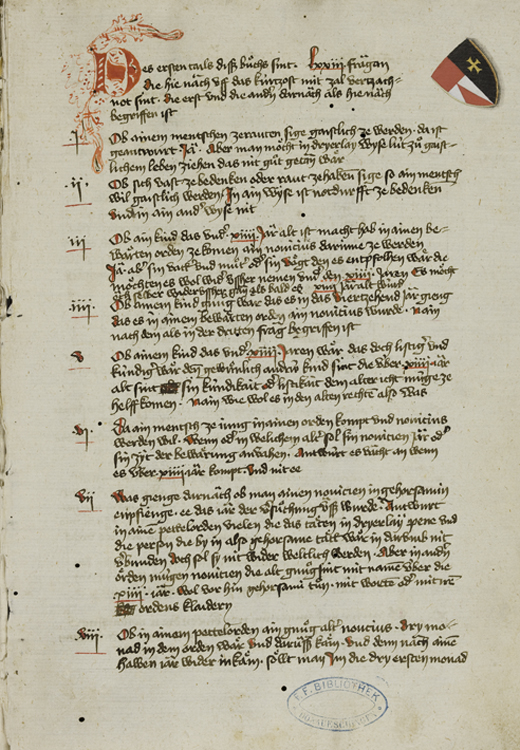 Des ersten tails diss buͦchs sint · lxxiii · fragen
die hie nach vff das kurtzost mit zal verzaich=
not sint · die erst vnd die andern darnach als hie nach
begriffen ist
· i · Ob ainem mentschen zeraten sige gaistlich ze werden · da ist
geantwurt Ja · Aber man moͤcht in dryerlay wyse lut zuͦ gaist=
lichem leben ziehen das nit guͦt getan waͤr
· ii · Ob sich vast ze bedenken oder raut ze haben sige so ain mentsch
wil gaistlich werden · In ain wyse ist notdurfft ze bedenken
vnd in ain and' wyse nit
iii Ob ain kind das vnd' · xiiii · Jar alt ist macht hab in ainen be=
waͤrten orden ze komen ain nouicius darinne ze werden
Ja · ab' sin vatt' vnd muͦt' od' sin voͤgt den es entpfolhen waͤr die
moͤchten es wol wid' vsser nemen vnd' den · xiiii · Jaren Es moͤcht
och selber wider vsser gan als bald es xiiii Jar alt wurd
iiii · Ob ainem kind gnuͦg waͤr das es in das viertzehend Jar gieng
das es in ainen bewaͤrten orden ain nouicius wurde · Nain
nach dem als in der dritten frag begriffen ist
v Ob ainem kind das vnd' · xiiii · Jaren waͤr · das doch listig vnd
kuͥndig waͤr den gewonlich andri kind sint die vͥber · xiiii · iar
alt sint sin kuͥndikait od' listikait dem alter icht muͥge ze
helff komen · Nain wie wol es in den alten rechte also was
· vi · Da ain mentsch ze iung in ainen orden kompt vnd nouicius
werden wil · Wenn od' in welichem alt' sol sin nouicien Jar od'
sin zyt der bewarung anvahen · Antwurt es vacht an wenn
es vͥber · xiiii · iar kompt · vnd nit ee
vii Was gienge darnach ob man ainen nouicien in gehorsamin
enpfienge · ee das iar der versuͦchung vss wurde · Antwurt
in ainem pettelorden vielen die das taͤten in dryerlay pene vnd
die person die by in also gehorsame taͤtt waͤr in darumb nit
verbunden doch sol sy nit wider weltlich werden · Aber in andern
oͤrden muͥgen nouicien die alt gnuͦg sint mit namen vͥber die
· xiiii · iar · wol vor hin gehorsami tuͦn · mit worte od' mit irem
ordens klaidern
· viii · Ob in ainem pettelorden ain gnuͦg alt' nouicius · dry mo=
nad in dem orden waͤr vnd daruss kaͤm · vnd denn nach ainem
halben iar wider in kaͤm · soͤlt man im die dry ersten monad
F. F. BIBLIOTHEK
DONAUESCHINGEN